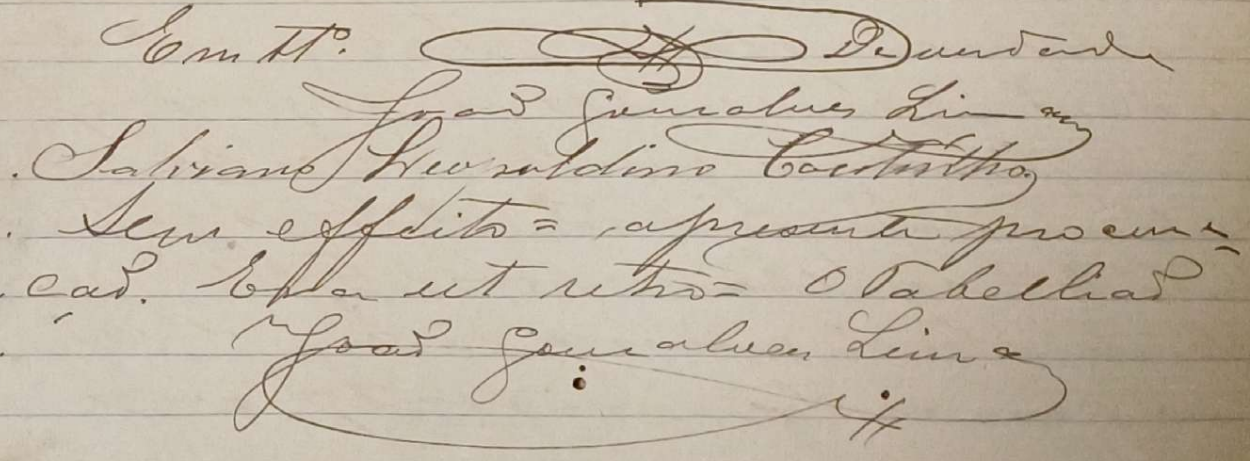 Em ttº. De verdade
João Gonçalves Lima
Salviano Leopoldino Coutinho
Sem effeito = apresente procura=
ção. Era ut retro = O Tabellião
João Gonçalves Lima